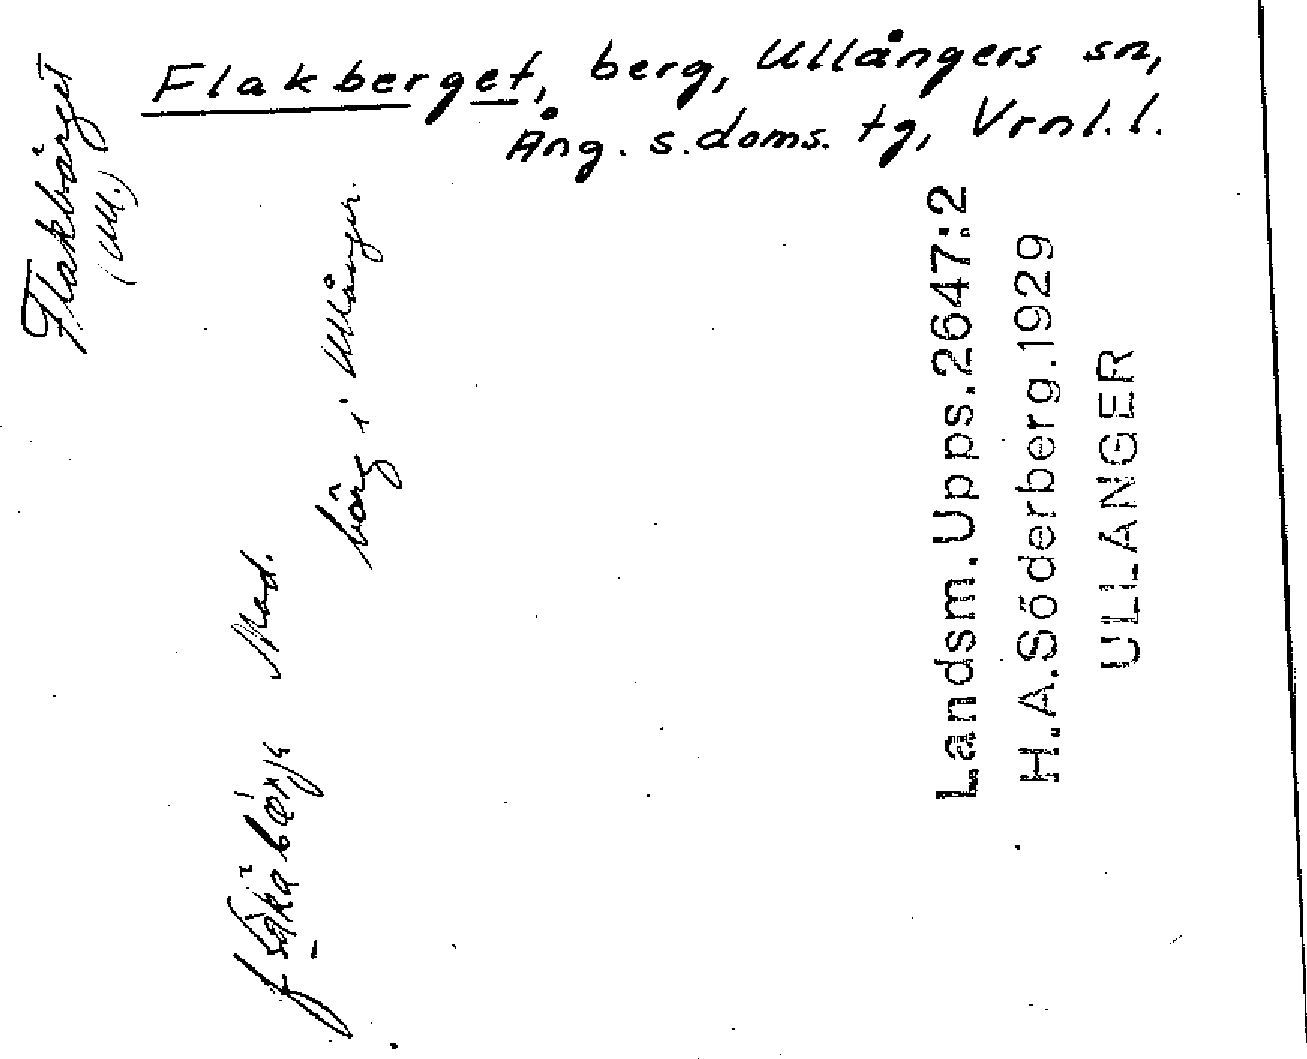 Flakberget, berg, Ullångers sn,
Ång. s. doms. tg, Vrnl. l.
Flakbärget
(Ull.)
bärg i Ullånger.
Landsm. Upps. 2647:2
H.A. Söderberg. 1929
ULLANGER